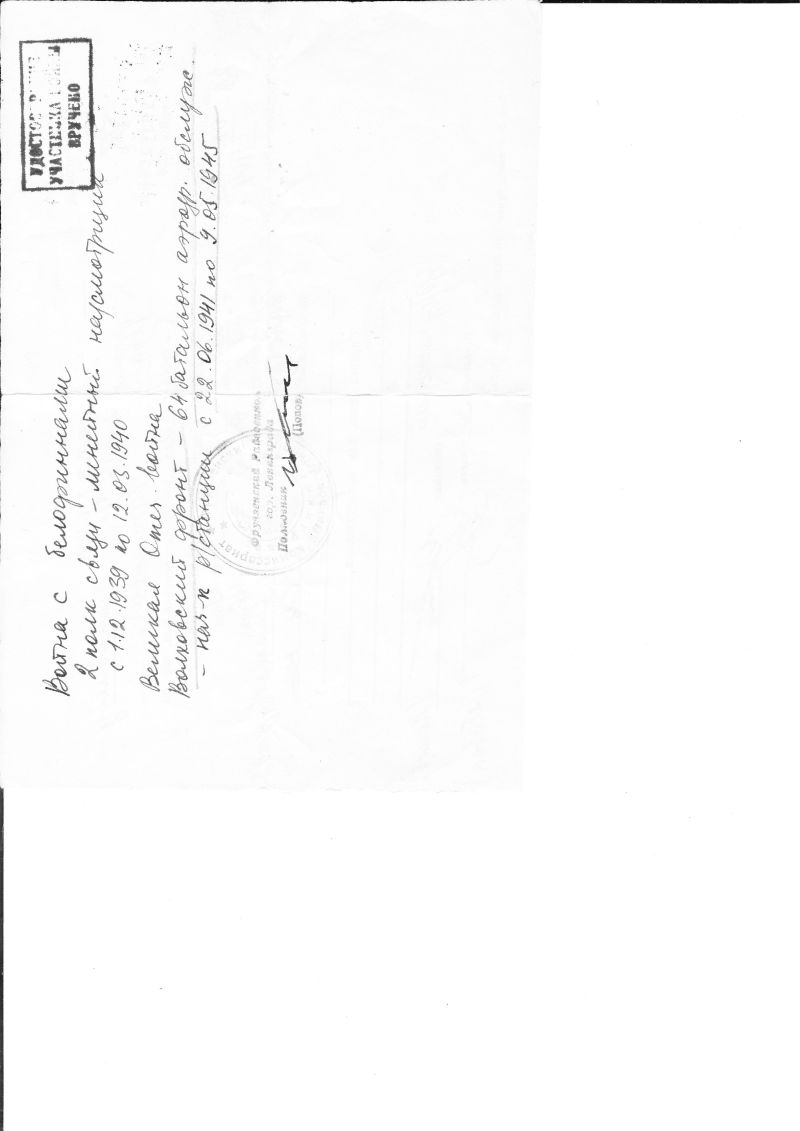 УДОСТОВЕРЕНИЕ
УЧАСТНИКА ВОЙНЫ
ВРУЧЕНО
Война с белофиннами
2 полк связи – линейный надсмотрщик
с 1.12.1939 по 12.03.1940
Великая Отеч. война
Волховский фронт – 64 батальон аэродр. обслуж.
– нач-к р/станции с 22.06.1941 по 9.05.1945
Фрунзенский Райвоенком
гор. Ленинграда
Полковник
(Попов)